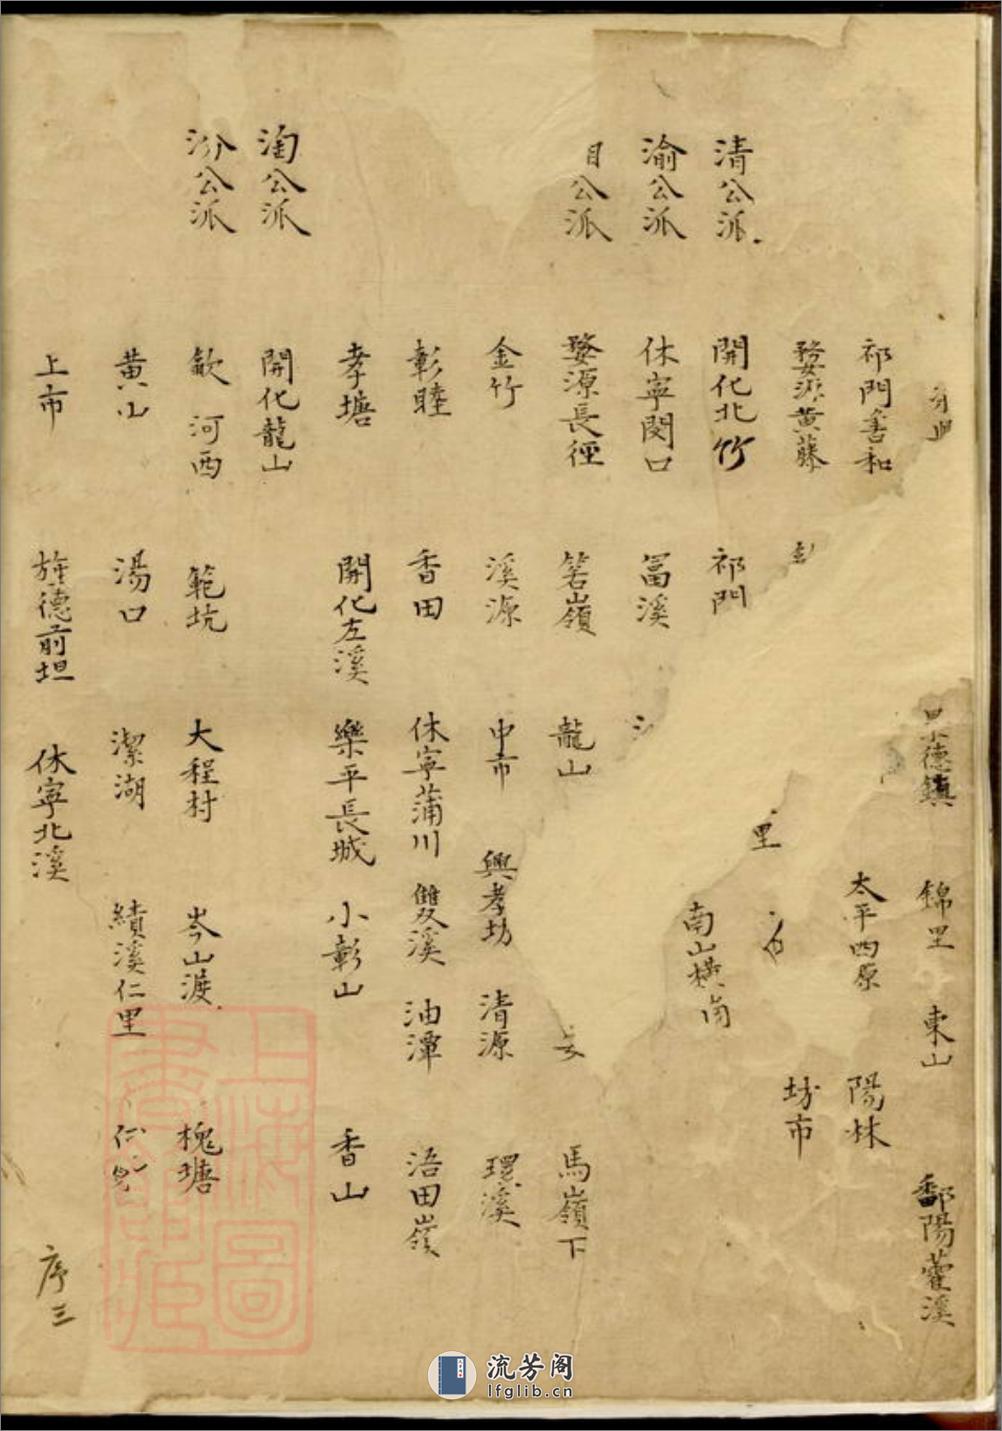 景德鎮 錦里 東山 鄱陽藿溪
祁門善和 太平西原 陽林
婺源黃藤 里 坊市
清公派 開化北竹 祁門 南山橫崗
渝公派 休寧閔口 冨溪
公派 婺源長徑 箬嶺 龍山 馬嶺下
金竹 溪源 中市 興孝坊 清源 環溪
彰睦 香田 休寧蒲川 雙溪 油潭 浯田嶺
孝塘 開化左溪 樂平長城 小彰山 香山
淘公派 開化龍山
汾公派 歙 河西 範坑 大程村 岑山渡 槐塘
黃山 湯口 潔湖 績溪仁里
上市 旌德前坦 休寧北溪
序三
上海圖書館藏
流芳阁
lfglib.cn